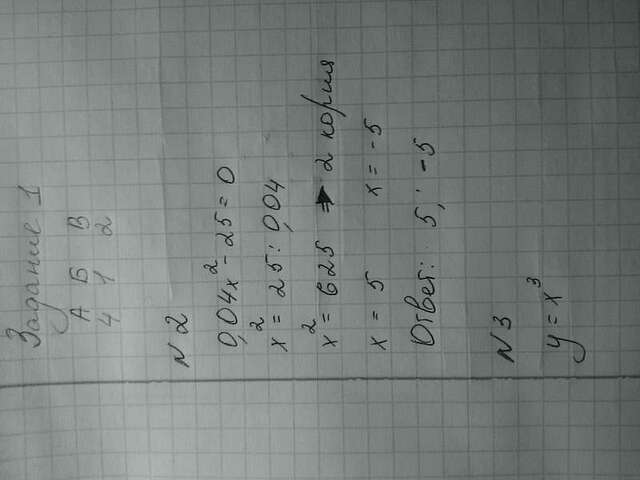 Задание 1
А Б В
4 1 2
N 2
0,04x² - 25 = 0
x² = 25 : 0,04
x² = 625 ⇒ 2 корня
x = 5 x = -5
Ответ: 5; -5
N 3
y = x³